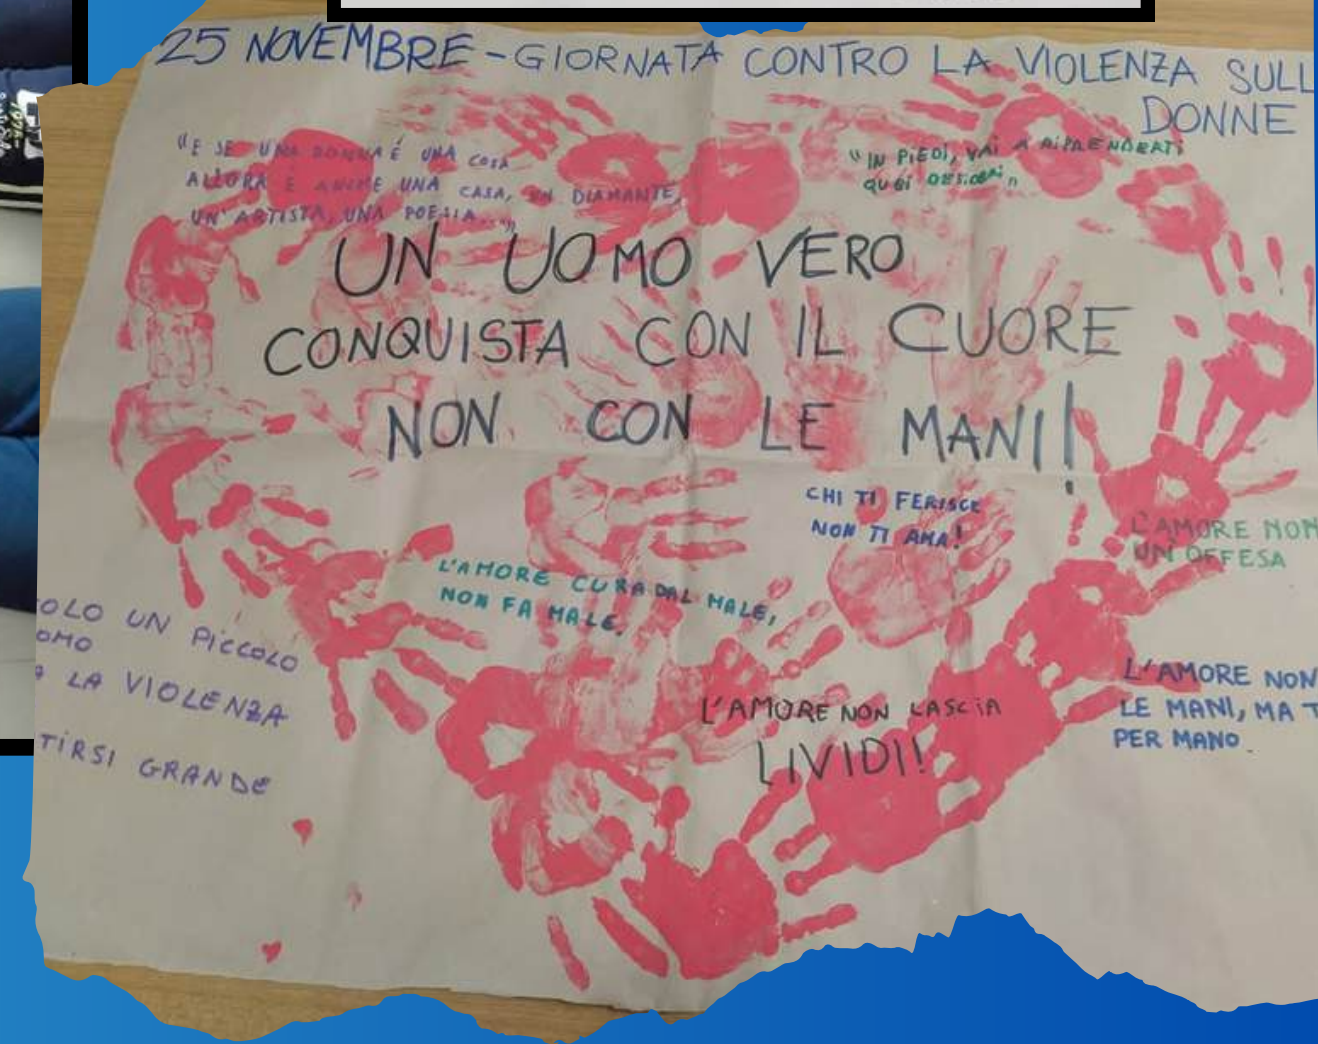 25 NOVEMBRE - GIORNATA CONTRO LA VIOLENZA SULL
DONNE
"E SE UNA DONNA É UNA COSA
ALLORA È ANCHE UNA CASA, UN DIAMANTE,
UN'ARTISTA, UNA POESIA..."
"IN PIEDI, VAI A RIPRENDERTI
QUEI DESIDERI"
UN UOMO VERO
CONQUISTA CON IL CUORE
NON CON LE MANI!
CHI TI FERISCE
NON TI AMA!
L'AMORE NON
UN'OFFESA
L'AMORE CURA DAL MALE,
NON FA MALE.
OLO UN PICCOLO
OMO
A LA VIOLENZA
TIRSI GRANDE
L'AMORE NON LASCIA
LIVIDI!
L'AMORE NON
LE MANI, MA T
PER MANO.